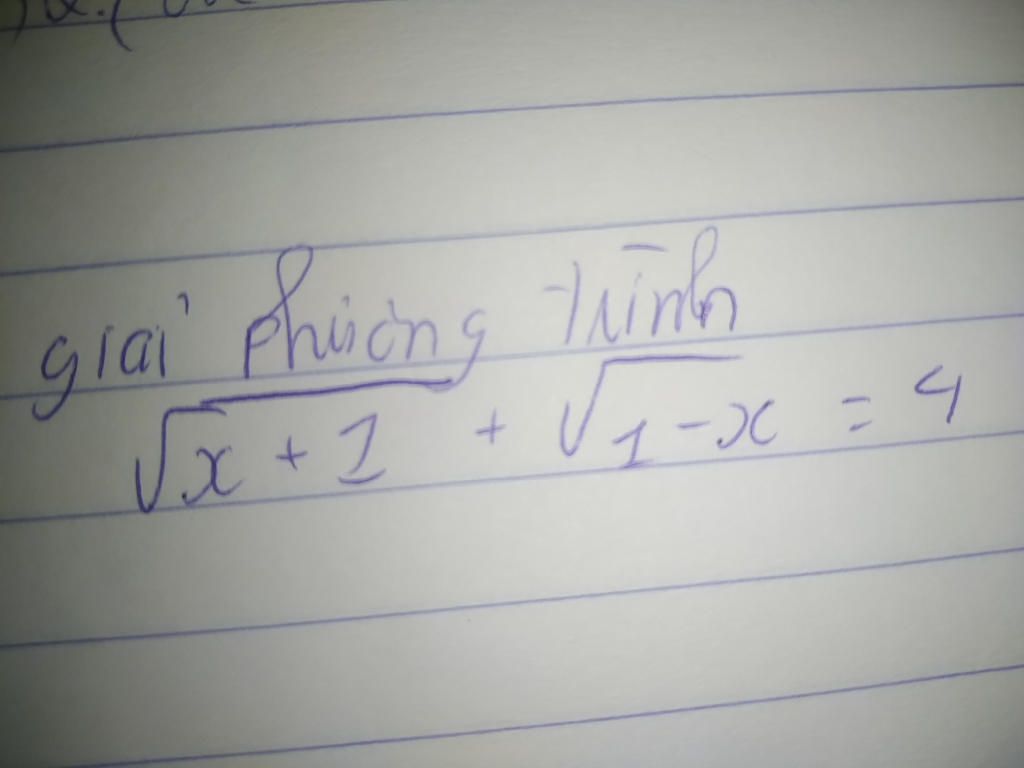 giải phương trình
√x + 1 + √1 - x = 4